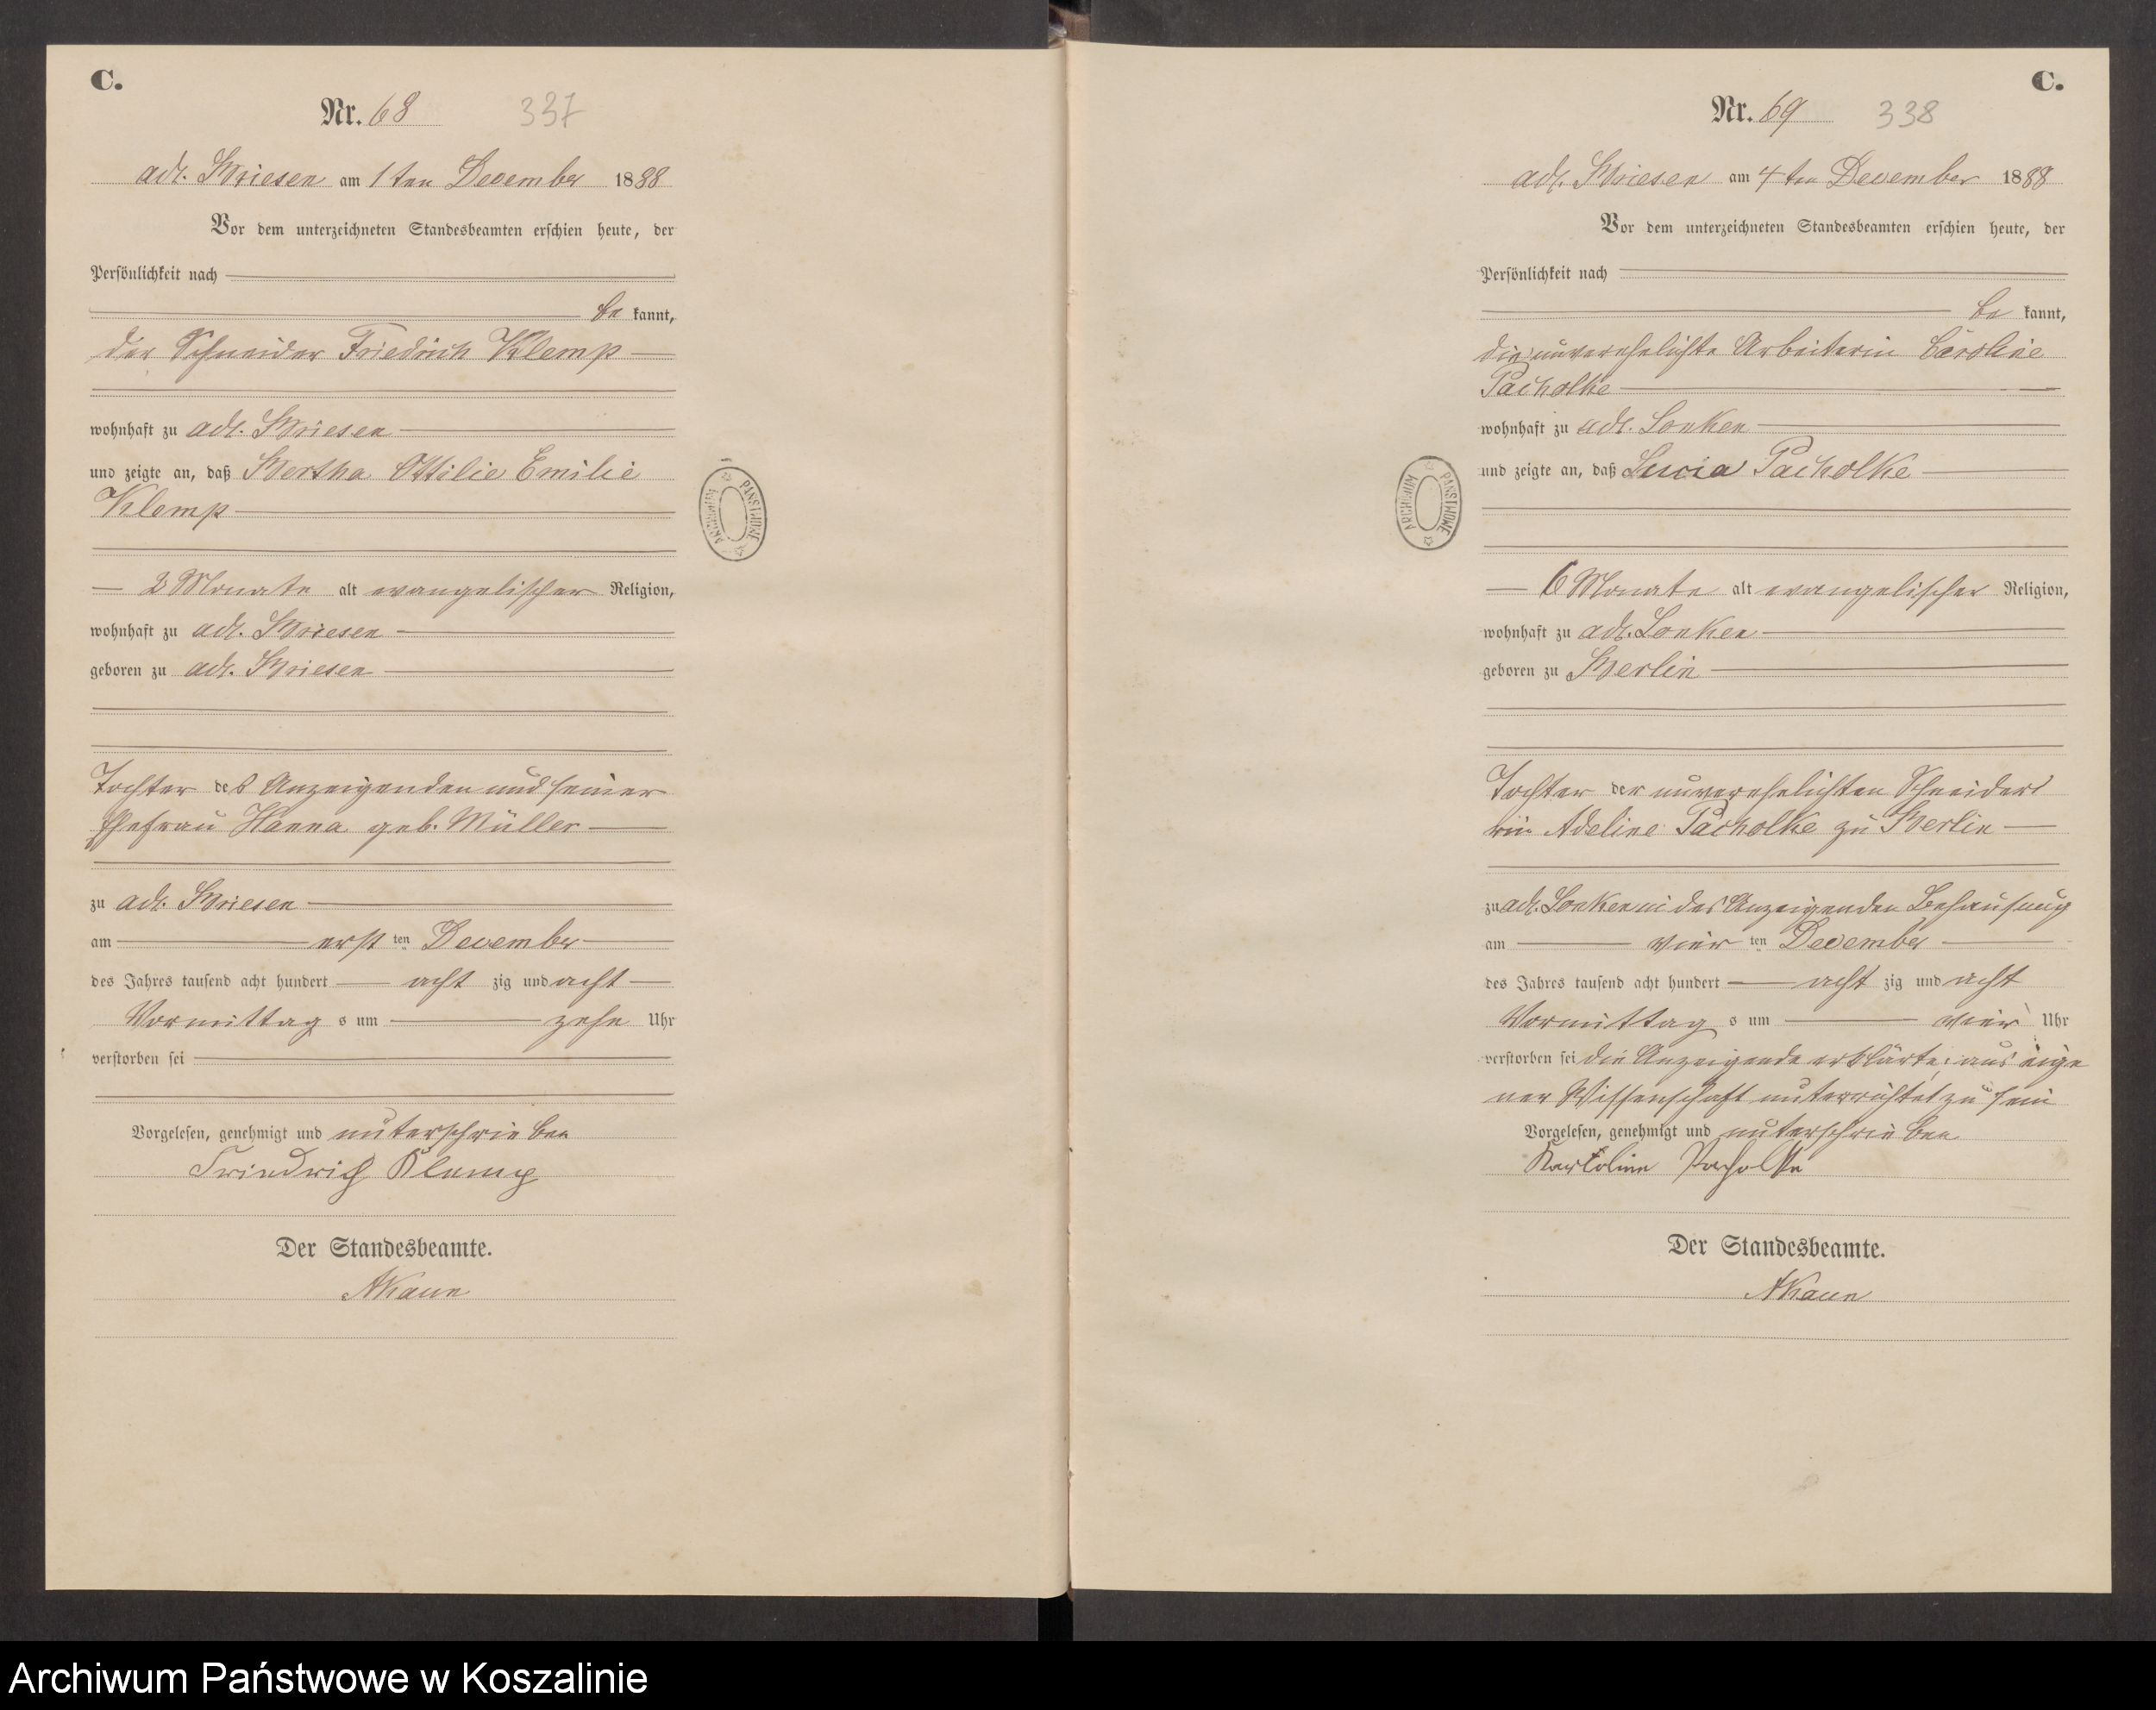 C.
Nr. 68 337
adl. Briesen am 1 ten December 1888
Vor dem unterzeichneten Standesbeamten erschien heute, der
Persönlichkeit nach
be kannt,
der Schneider Friedrich Klemp
wohnhaft zu adl. Briesen
und zeigte an, daß Bertha Ottilie Emilie
Klemp
2 Monate alt evangelischer Religion,
wohnhaft zu adl. Briesen
geboren zu adl. Briesen
Tochter des Anzeigenden und seiner
Ehefrau Hanna geb. Müller
zu adl. Briesen
am erst ten December
des Jahres tausend acht hundert acht zig und acht
Vormittag s um zehn Uhr
verstorben sei
Vorgelesen, genehmigt und unterschrieben
Friedrich Klemp
Der Standesbeamte.
ARCHIWUM PAŃSTWOWE
C.
Nr. 69 338
adl. Briesen am 4 ten December 1888
Vor dem unterzeichneten Standesbeamten erschien heute, der
Persönlichkeit nach
be kannt,
die unverehelichte Arbeiterin Caroline
Pacholke
wohnhaft zu adl. Lonken
und zeigte an, daß Lucia Pacholke
6 Monate alt evangelischer Religion,
wohnhaft zu adl. Lonken
geboren zu Berlin
Tochter der unverehelichten Schneide
rin Adeline Pacholke zu Berlin
zu adl. Lonken in des Anzeigenden Behausung
am vier ten December
des Jahres tausend acht hundert acht zig und acht
Vormittag s um vier Uhr
verstorben sei die Anzeigende erklärte, aus eige
ner Wissenschaft unterrichtet zu sein
Vorgelesen, genehmigt und unterschrieben
Karoline Pacholke
Der Standesbeamte.
ARCHIWUM PAŃSTWOWE
Archiwum Państwowe w Koszalinie